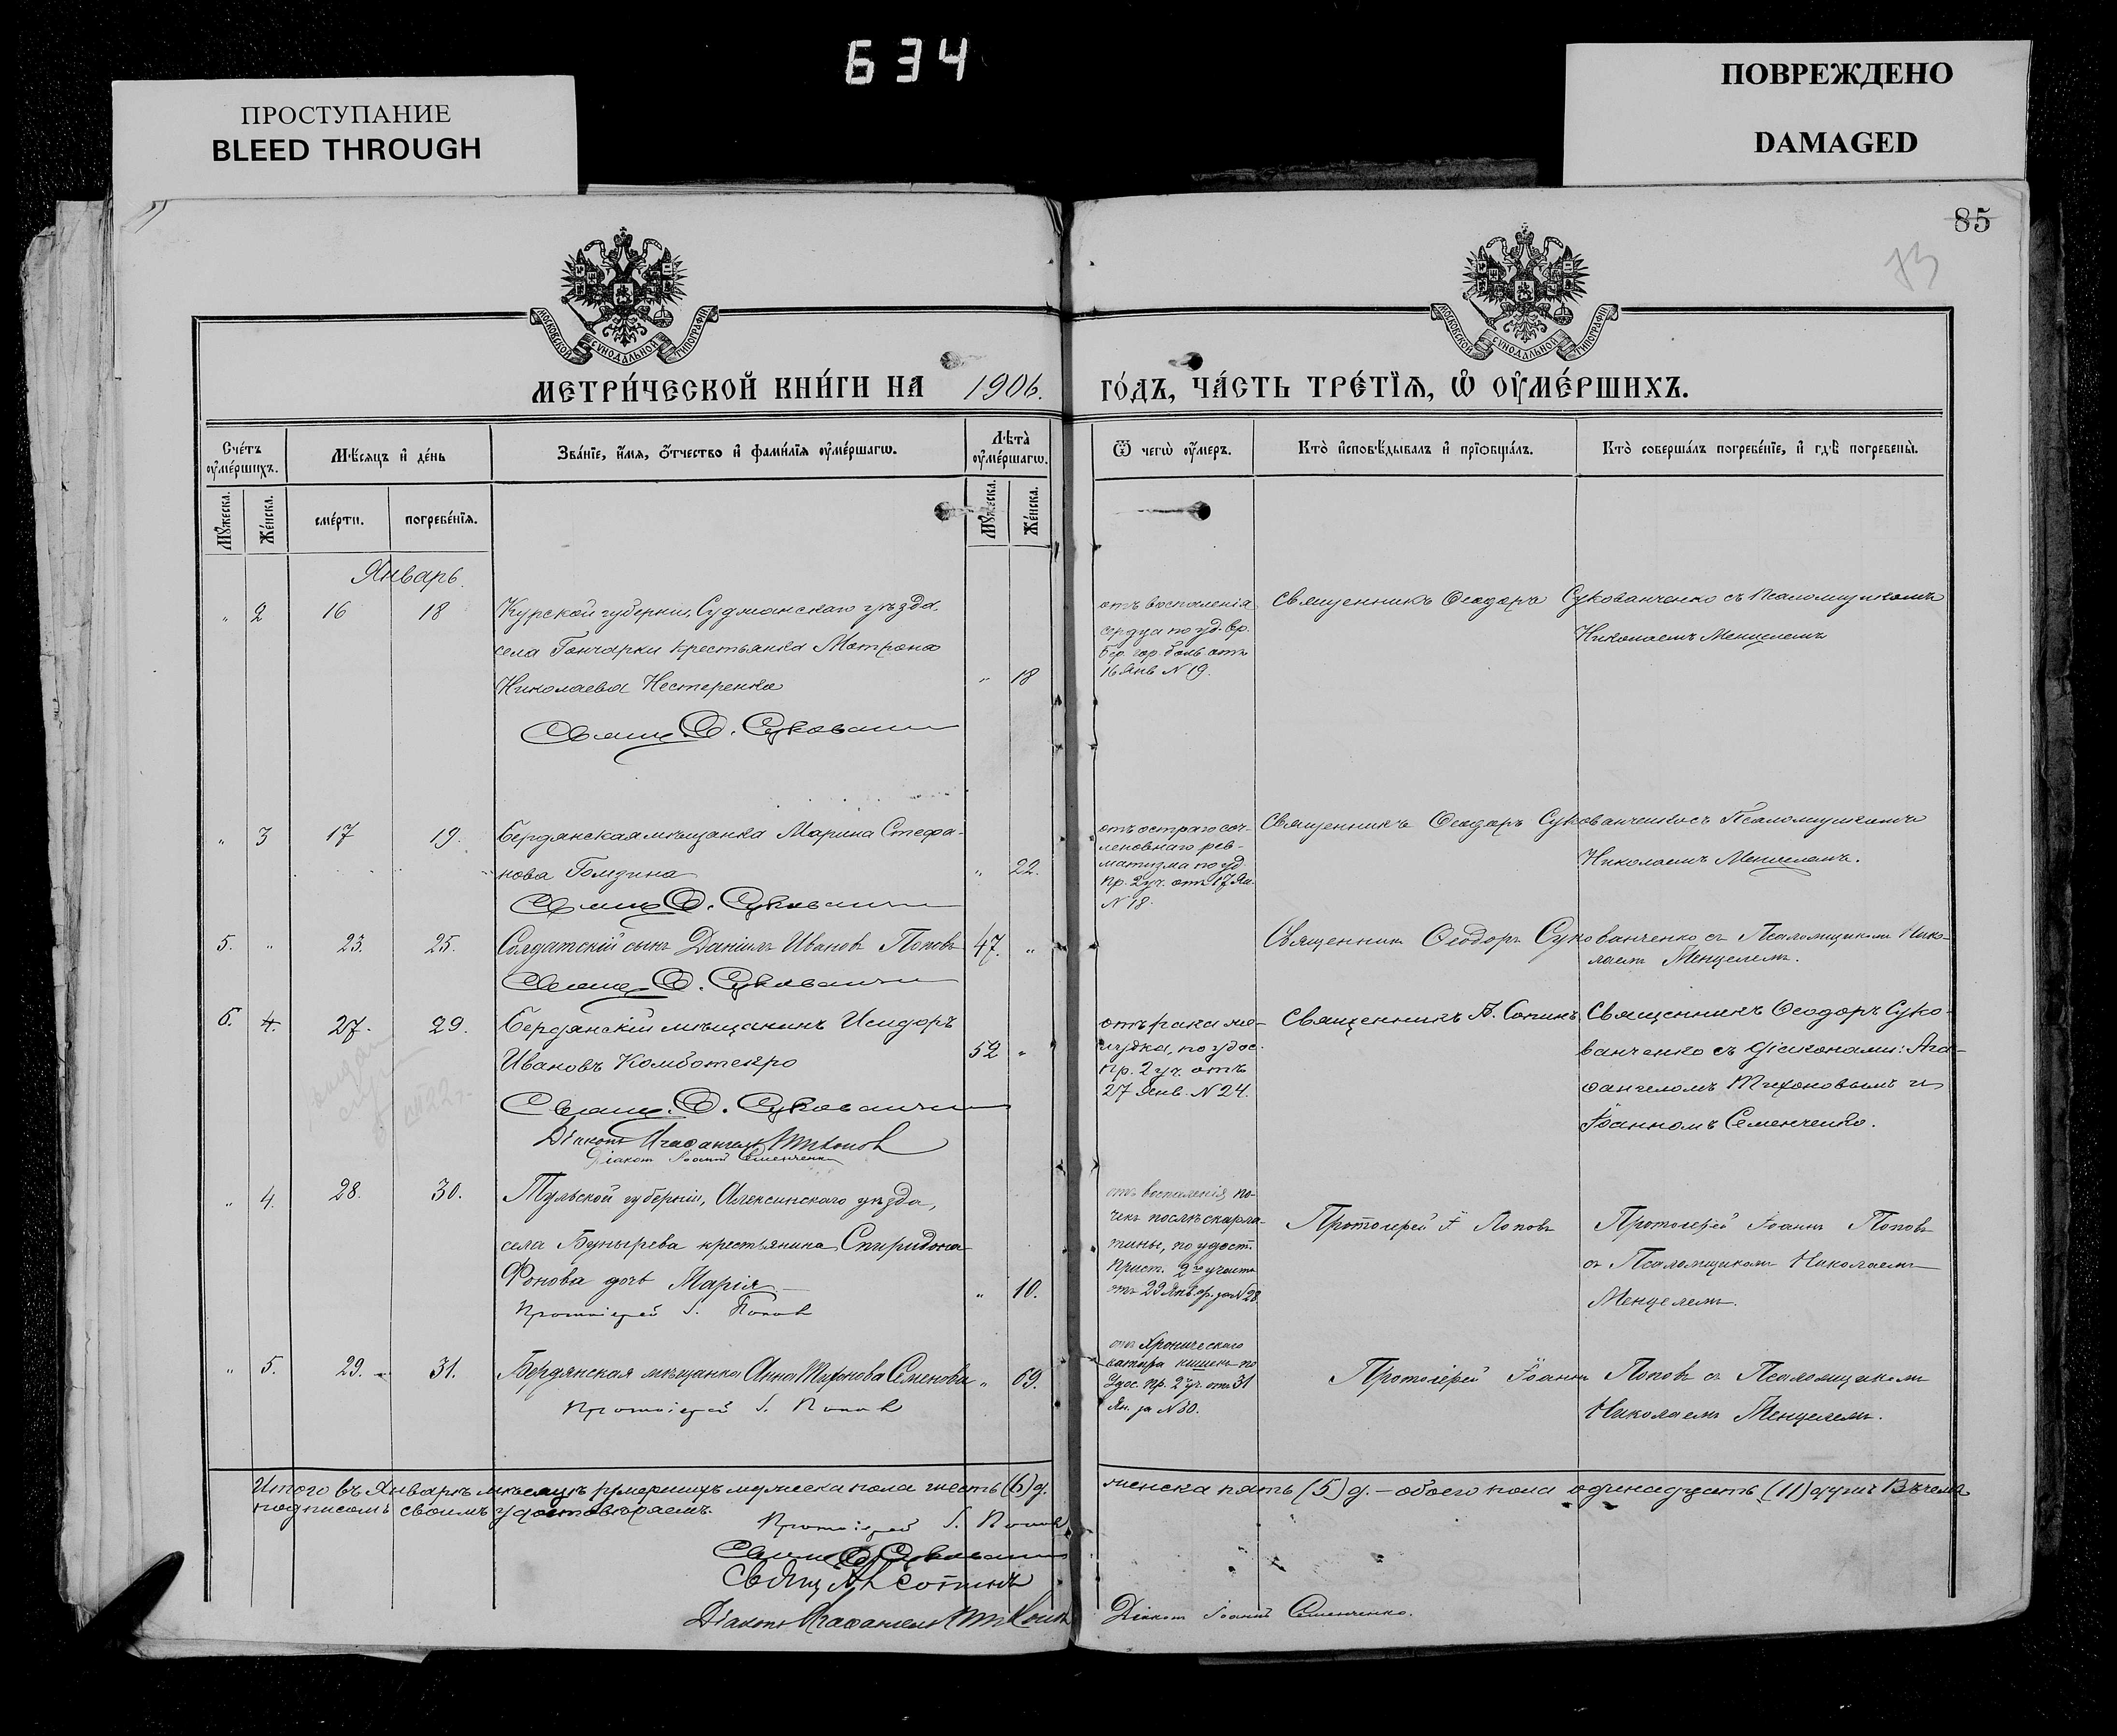 634
ПРОСТУПАНИЕ
BLEED THROUGH
ПОВРЕЖДЕНО
DAMAGED
85
МОСКОВСКОЙ СѴНОДАЛЬНОЙ ТИПОГРАФІИ
МОСКОВСКОЙ СѴНОДАЛЬНОЙ ТИПОГРАФІИ
МЕТРИ́ЧЕСКОЙ КНИ́ГИ НА 1906. ГО́ДЪ, ЧА́СТЬ ТРЕ́ТЇѦ, Ѡ҆ ОУ҆МЕ́РШИХЪ.
Сче́тъ оу҆ме́ршихъ.
Мѣ́сяцъ и҆ де́нь
Зва́нїе, и҆́мя, ѻ҆́тчество и҆ фами́лїя оу҆ме́ршагѡ.
Лѣта̀ оу҆ме́ршагѡ.
Ѿ чегѡ̀ оу҆́меръ.
Кто̀ и҆сповѣ́дывалъ и҆ прїѡбща́лъ.
Кто̀ соверша́лъ погребе́нїе, и҆ гдѣ̀ погребены̀.
Мꙋ́жеска.
Же́нска.
сме́рти.
погребе́нїя.
Мꙋ́жеска.
Же́нска.
Январь.
" 2 16 18 Курской губерніи, Суджанскаго уѣзда,
села Гончарки крестьянка Матрона
Николаева Нестеренко " 18
Свящ. Ѳ. Сукованч
отъ воспаленія
сердца по уд. вр.
Бер. гор. боль. отъ
16 Янв N 19.
Священникъ Ѳеодоръ Сукованченко съ Псаломщикомъ
Николаемъ Менцелемъ
" 3 17 19. Бердянская мѣщанка Марина Стефа-
нова Гомзина " 22.
Свящ. Ѳ. Сукованч
отъ остраго соч-
леновнаго рев-
матизма по уд.
Пр. 2 уч. отъ 17 Ян.
N 18.
Священникъ Ѳеодоръ Сукованченко съ Псаломщикомъ
Николаемъ Менцелемъ.
5. " 23. 25. Солдатскій сынъ Даніилъ Ивановъ Поповъ 47. "
Свящ. Ѳ. Сукованч
Священникъ Ѳеодоръ Сукованченко съ Псаломщикомъ Нико-
лаемъ Менцелемъ.
6. 4. 27. 29. Бердянскій мѣщанинъ Исидоръ
Ивановъ Комботекро 52 "
Свящ. Ѳ. Сукованч
Діаконъ Агаѳангелъ Тихонов
Діаконъ Іоаннъ Семенченко
отъ рака же-
лудка, по удос.
Пр. 2 уч. отъ
27 Янв. N 24.
Священникъ А. Сопинъ
Священникъ Ѳеодоръ Суко-
ванченко съ діаконами: Ага-
ѳангеломъ Тихоновымъ и
Іоанномъ Семенченко.
" 4. 28. 30. Тульской губерніи, Алексинскаго уѣзда,
села Бунырева крестьянина Спиридона
Фонова дочь Марія " 10.
Протоіерей І. Попов
отъ воспаленія по-
чекъ послѣ скарла-
тины, по удост.
Прист. 2го участк
отъ 29 Янв. за N 28
Протоіерей І. Поповъ
Протоіерей Іоаннъ Поповъ
съ Псаломщикомъ Николаемъ
Менцелемъ.
" 5. 29. 31. Бердянская мѣщанка Анна Тихонова Семенова " 69.
Протоіерей І. Попов
отъ Хроническаго
катара кишекъ по
Удос. Пр. 2 уч. отъ 31
Ян. за N 30.
Протоіерей Іоаннъ Поповъ съ Псаломщикомъ
Николаемъ Менцелемъ.
Итого въ Январѣ мѣсяцѣ умершихъ мужеска пола шесть (6) д. женска пять (5) д. – обоего пола одинадцать (11) душъ Въ чемъ
подписомъ своимъ удостовѣряемъ.
Протоіерей І. Попов
Свящ. Ѳ. Сукованч
Діаконъ Агаѳангелъ Тихонов
Діаконъ Іоаннъ Семенченко.